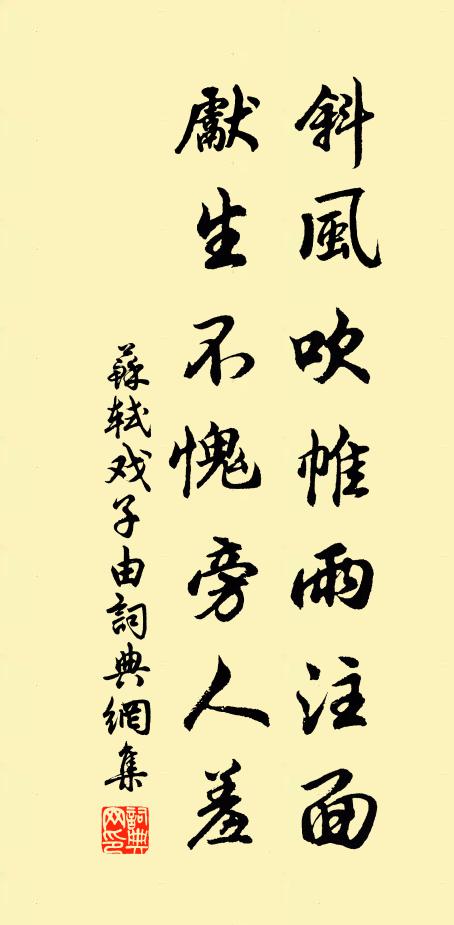 斜風吹帷雨注面
獻生不愧旁人羞
蘇軾戏子由詞典網集
詞典
网印